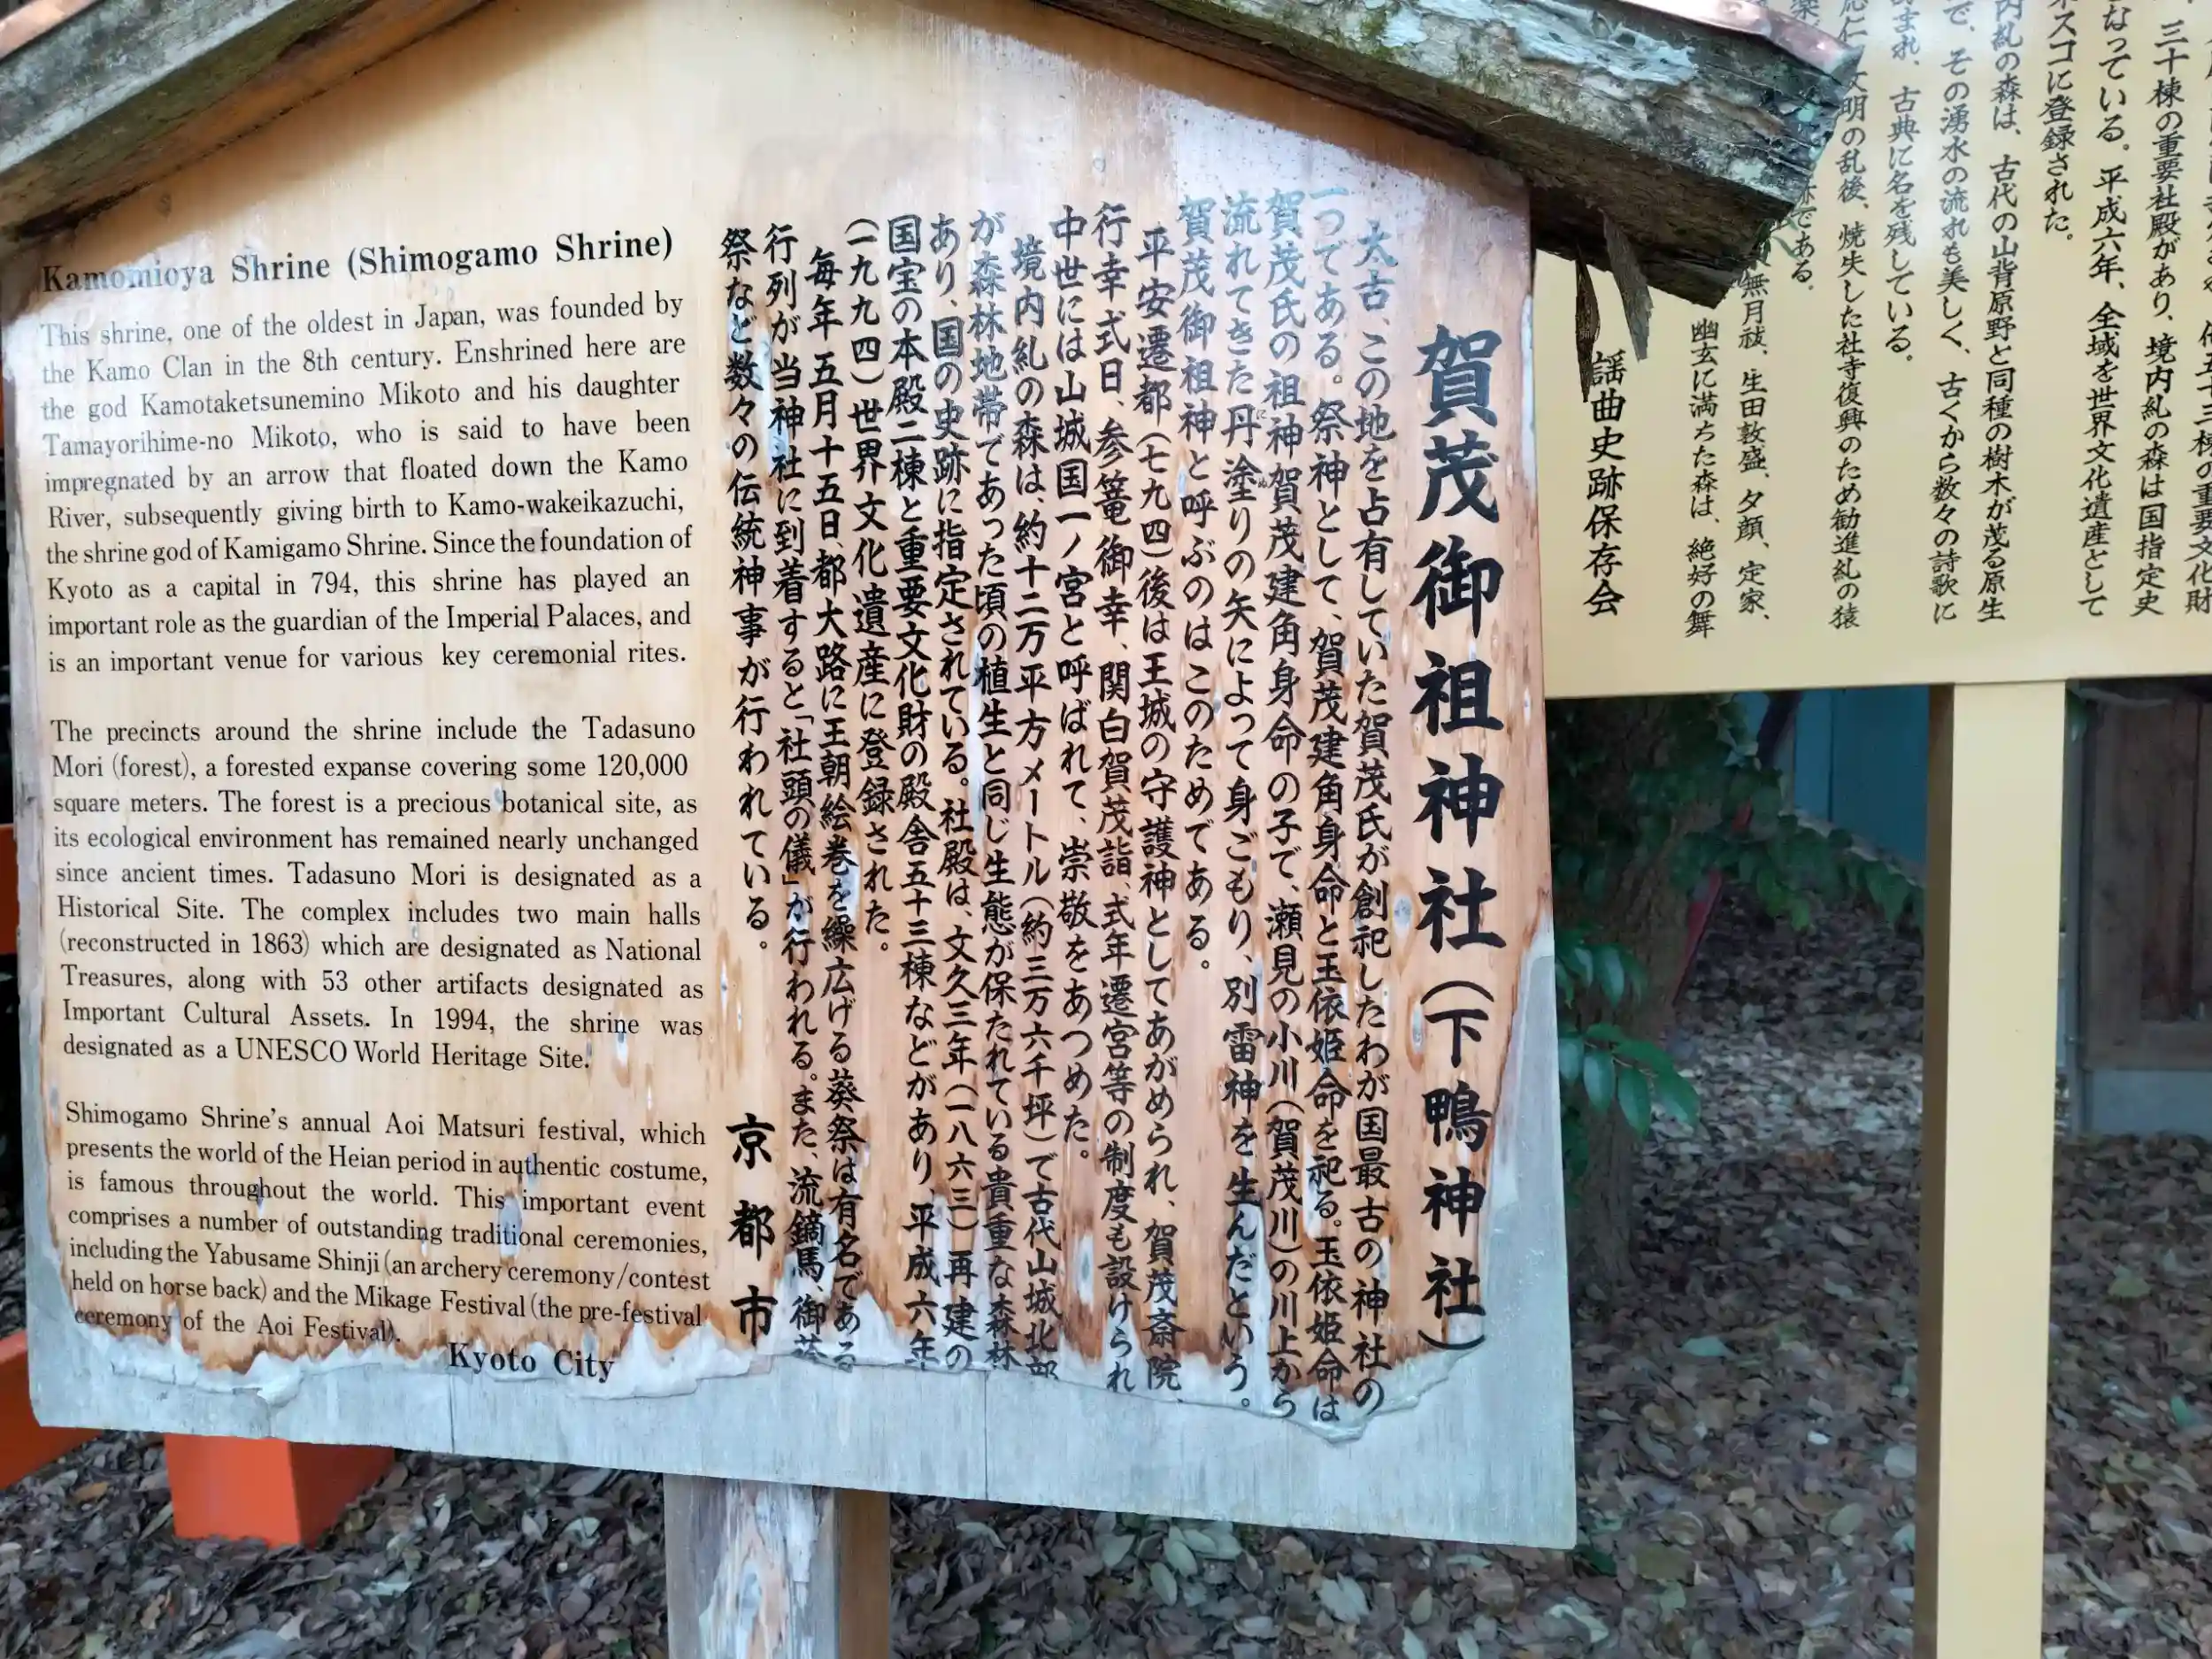 Kamomioya Shrine (Shimogamo Shrine)
This shrine, one of the oldest in Japan, was founded by
the Kamo Clan in the 8th century. Enshrined here are
the god Kamotaketsunemino Mikoto and his daughter
Tamayorihime-no Mikoto, who is said to have been
impregnated by an arrow that floated down the Kamo
River, subsequently giving birth to Kamo-wakeikazuchi,
the shrine god of Kamigamo Shrine. Since the foundation of
Kyoto as a capital in 794, this shrine has played an
important role as the guardian of the Imperial Palaces, and
is an important venue for various key ceremonial rites.
The precincts around the shrine include the Tadasuno
Mori (forest), a forested expanse covering some 120,000
square meters. The forest is a precious botanical site, as
its ecological environment has remained nearly unchanged
since ancient times. Tadasuno Mori is designated as a
Historical Site. The complex includes two main halls
(reconstructed in 1863) which are designated as National
Treasures, along with 53 other artifacts designated as
Important Cultural Assets. In 1994, the shrine was
designated as a UNESCO World Heritage Site.
Shimogamo Shrine's annual Aoi Matsuri festival, which
presents the world of the Heian period in authentic costume,
is famous throughout the world. This important event
comprises a number of outstanding traditional ceremonies,
including the Yabusame Shinji (an archery ceremony/contest
held on horse back) and the Mikage Festival (the pre-festival
ceremony of the Aoi Festival).
Kyoto City
賀茂御祖神社（下鴨神社）
太古、この地を占有していた賀茂氏が創祀したわが国最古の神社の
一つである。祭神として、賀茂建角身命と玉依姫命を祀る。玉依姫命は
賀茂氏の祖神賀茂建角身命の子で、瀬見の小川（賀茂川）の川上から
流れてきた丹塗りの矢によって身ごもり、別雷神を生んだという。
賀茂御祖神と呼ぶのはこのためである。
平安遷都（七九四）後は王城の守護神としてあがめられ、賀茂斎院、
行幸式日、参篭御幸、関白賀茂詣、式年遷宮等の制度も設けられ
中世には山城国一ノ宮と呼ばれて、崇敬をあつめた。
境内糺の森は、約十二万平方メートル（約三万六千坪）で古代山城北部
が森林地帯であった頃の植生と同じ生態が保たれている貴重な森林
あり、国の史跡に指定されている。社殿は、文久三年（一八六三）再建の
国宝の本殿二棟と重要文化財の殿舎五十三棟などがあり、平成六年
（一九九四）世界文化遺産に登録された。
毎年五月十五日、都大路に王朝絵巻を繰広げる葵祭は有名である
行列が当神社に到着すると「社頭の儀」が行われる。また、流鏑馬、御蔭
祭など数々の伝統神事が行われている。
京都市
三十棟の重要社殿があり、境内糺の森は国指定史
なっている。平成六年、全域を世界文化遺産として
ネスコに登録された。
内糺の森は、古代の山背原野と同種の樹木が茂る原生
で、その湧水の流れも美しく、古くから数々の詩歌に
まれ、古典に名を残している。
応仁文明の乱後、焼失した社寺復興のため勧進糺の猿
楽
である。
無月祓、生田敦盛、夕顔、定家、
幽玄に満ちた森は、絶好の舞
謡曲史跡保存会